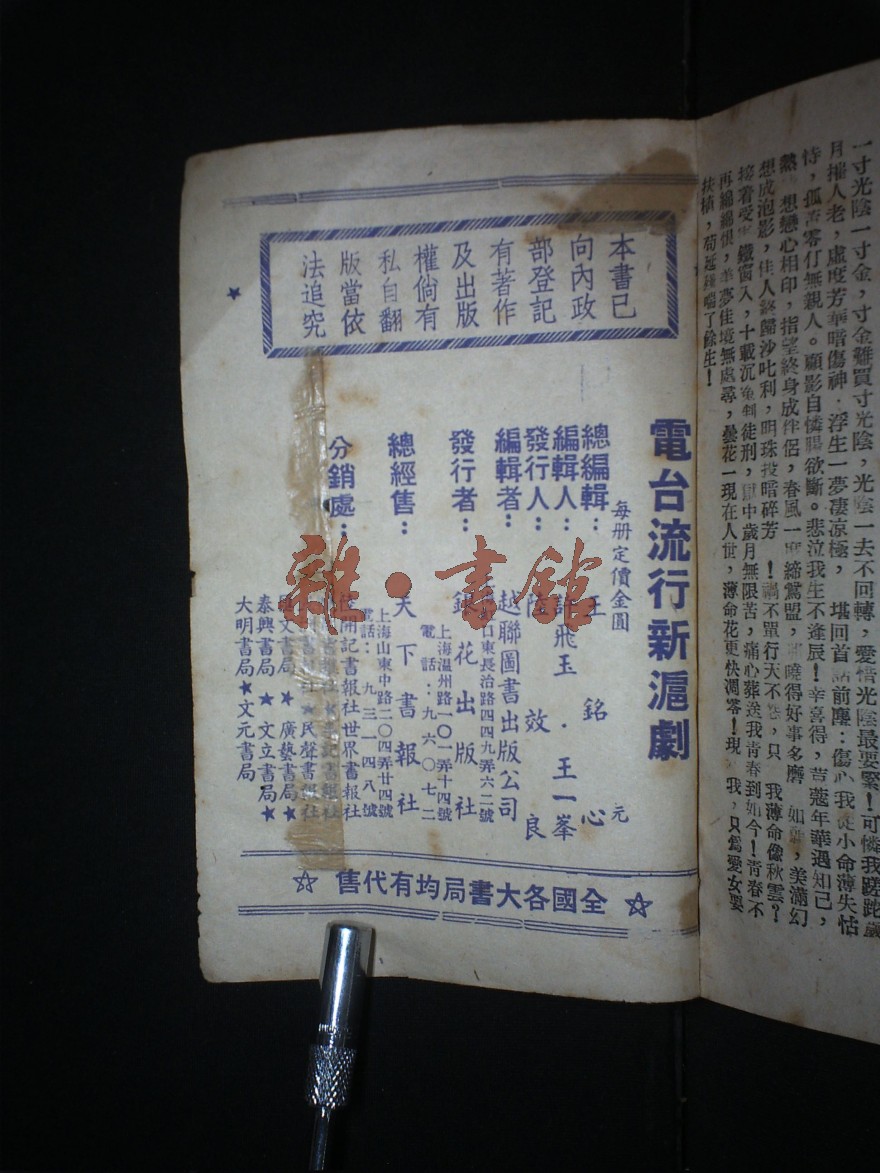 一寸光陰一寸金，寸金難買寸光陰，光陰一去不回轉，愛惜光陰最要緊！可憐我蹉跎歲
月摧人老，虛度芳華暗傷神．浮生一夢凄凉極，堪回首話前塵：傷心我從小命薄失怙
恃，孤苦零仃無親人。顧影自憐腸欲斷。悲泣我生不逢辰！幸喜得，荳蔻年華遇知己，
熱 想戀心相印，指望終身成伴侶，春風一度締鴛盟， 曉得好事多磨 如 ，美滿幻
想成泡影，佳人終歸沙叱利，明珠投暗碎芳 ！禍不單行天不 ，只 我薄命像秋雲？
接著受 鐵窗入，十載沉 徒刑， 中歲月無限苦，痛心葬送我青春到如今！青春不
再綿綿恨， 夢佳境無處尋，曇花一現在人世，薄命花更快凋零！現 我，只為愛女要
扶植，苟延 喘了餘生！
本書已
向內政
部登記
有著作
及出版
權倘有
私自翻
版當依
法追究
電台流行新滬劇
每册定價金圓 元
總編輯：王 銘 心
編輯人： 飛玉．王一峯
發行人：陸 效 良
編輯者：越聯圖書出版公司
口東長治路四四九弄六二號
發行者：銀花出版社
上海温州路一〇一弄十四號
電話：九六〇七二
總經售：天下書報社
上海山東中路二〇四弄廿四號
電話：九三一四八號
分銷處： 開記書報社世界書報社
書報社★ 記書報社
社★民聲書報社
文書局★廣藝書局★
泰興書局★文立書局★
大明書局★文元書局
☆ 全國各大書局均有代售 ☆
雜·書館